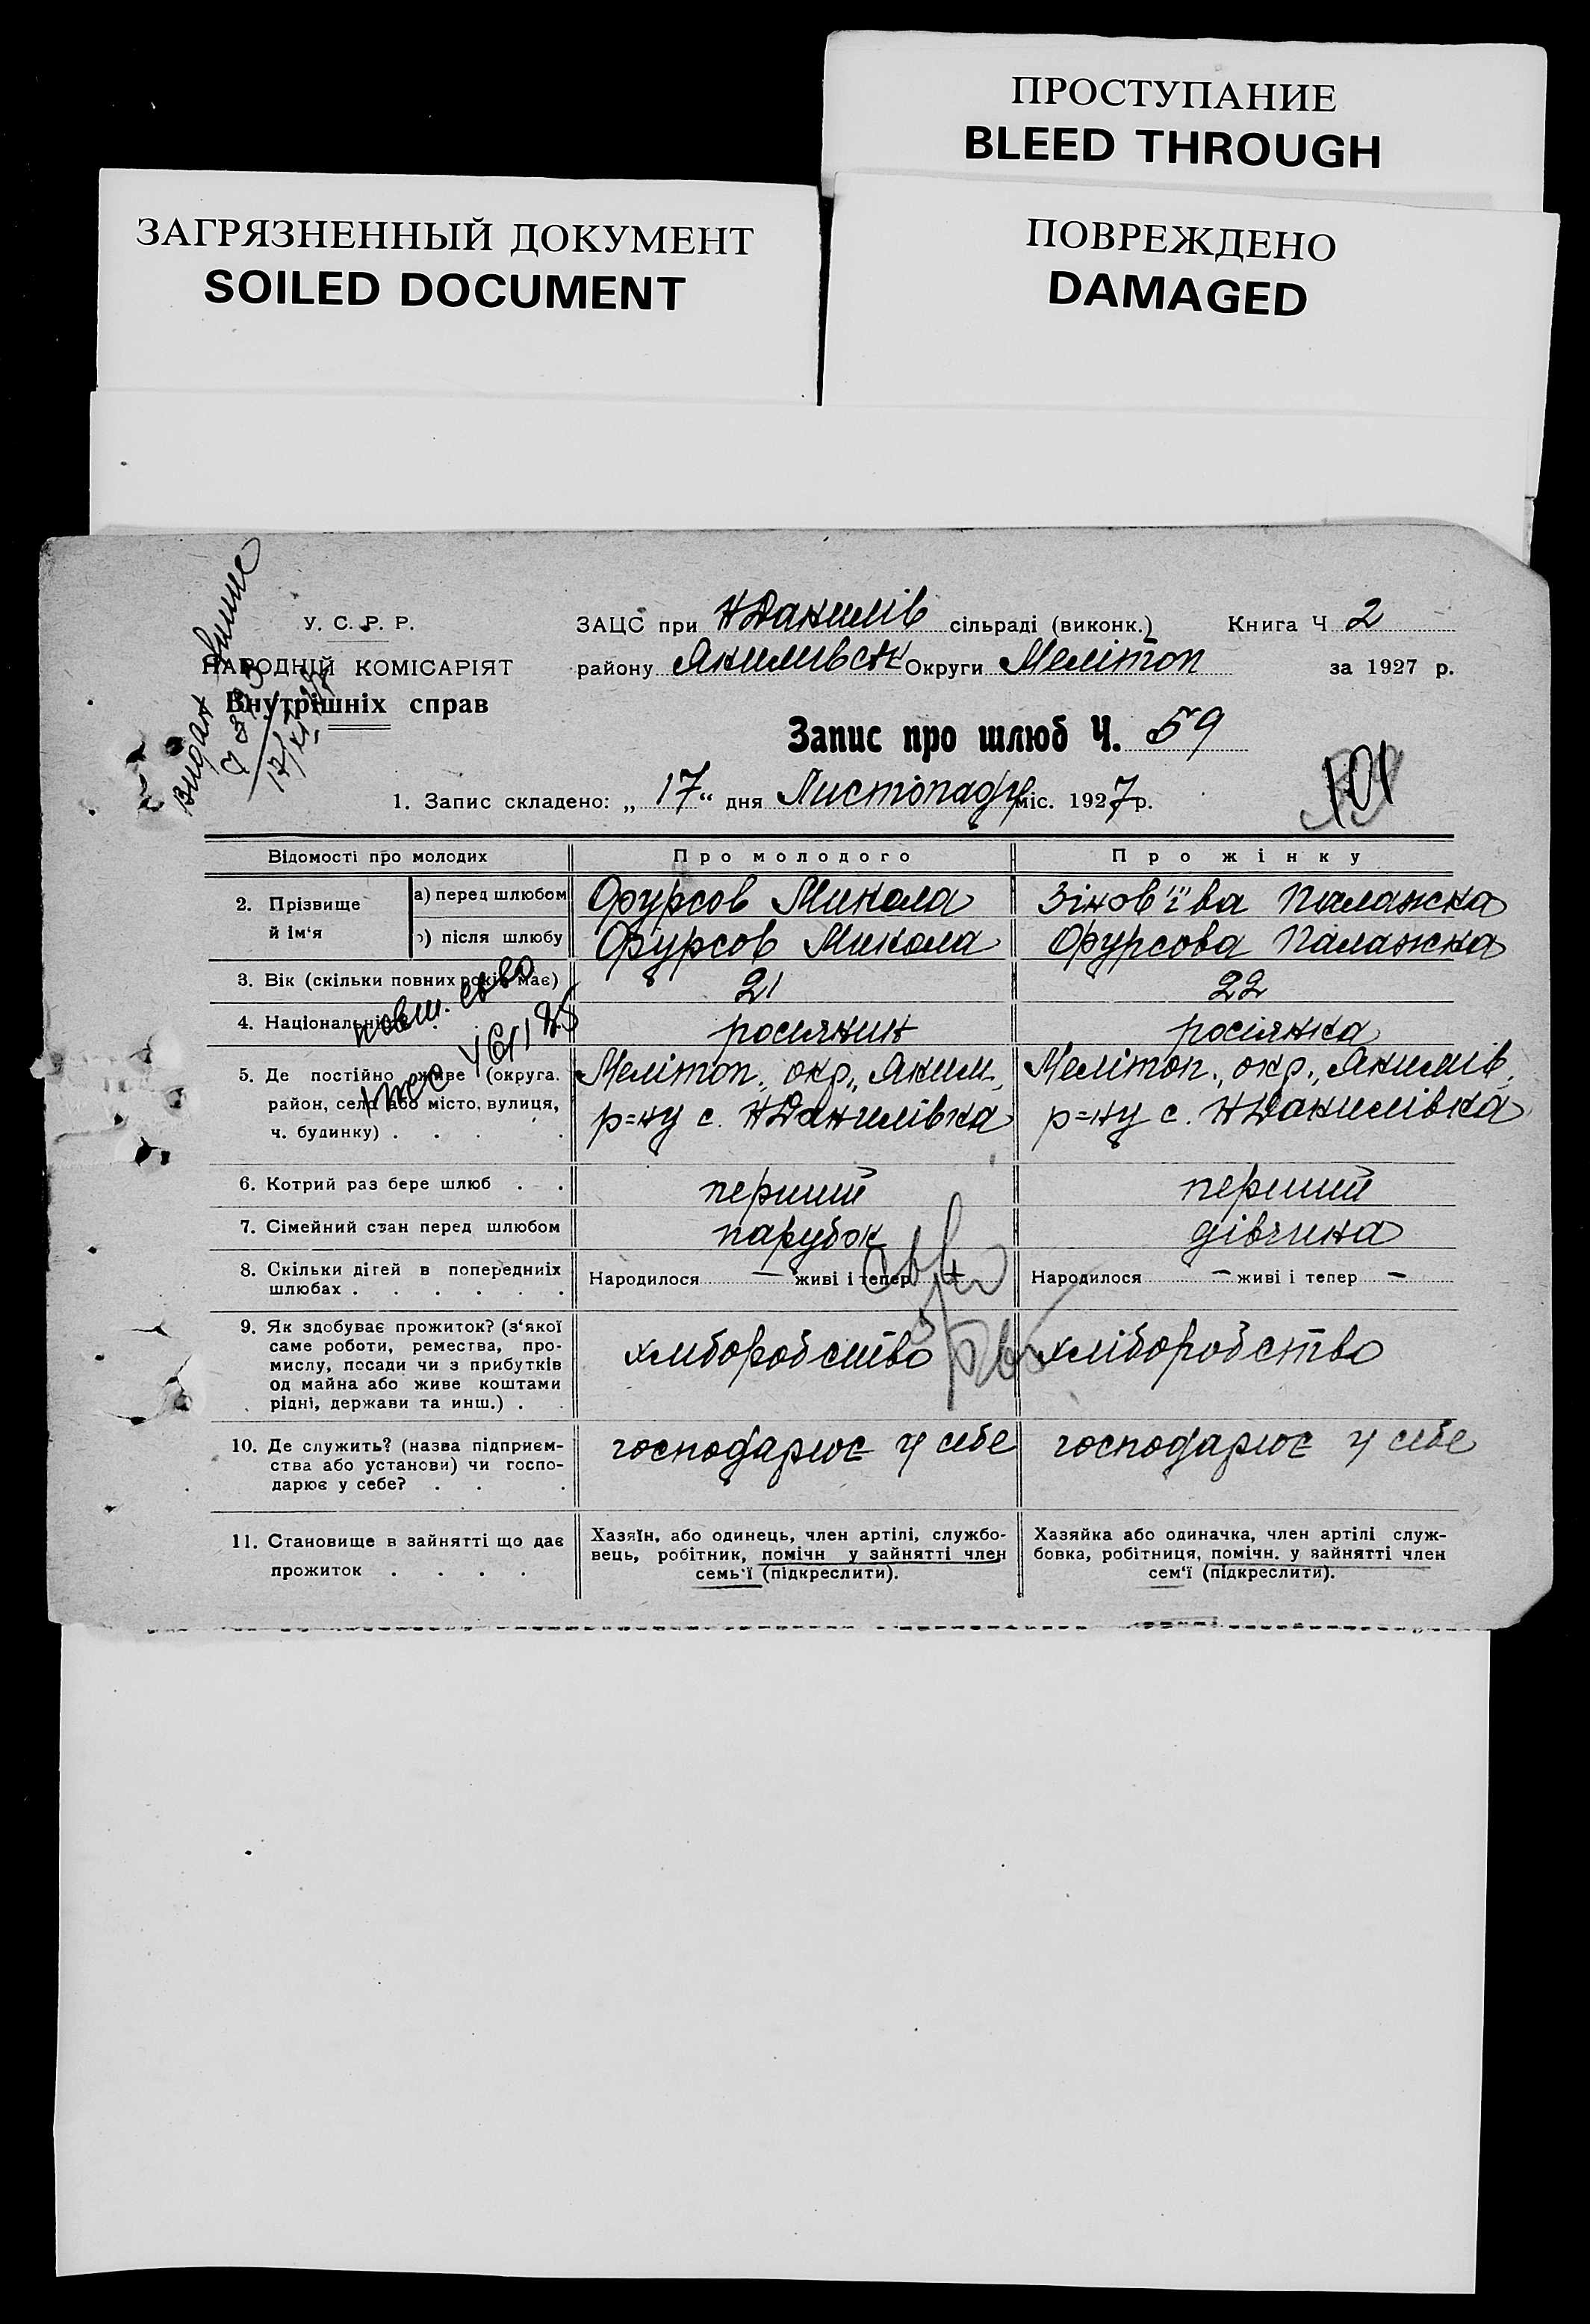 ПРОСТУПАНИЕ
BLEED THROUGH
ЗАГРЯЗНЕННЫЙ ДОКУМЕНТ
SOILED DOCUMENT
ПОВРЕЖДЕНО
DAMAGED
У. С. Р. Р.
НАРОДНІЙ КОМІСАРІЯТ
Внутрішніх справ
ЗАЦС при НДанилів сільраді (виконк.) Книга Ч 2
району Якимівськ Округи Мелітоп за 1927 р.
Запис про шлюб Ч. 59
101
1. Запис складено: „ 17 “ дня Листопаду міс. 1927 р.
Видан
Відомості про молодих Про молодого Про жінку
2. Прізвище й ім‘я
а) перед шлюбом Фурсов Микола Зінов'їва Палажка
) після шлюбу Фурсов Микола Фурсова Палажка
3. Вік (скільки повних років має) 21 22
4. Національність росіянин росіянка
5. Де постійно живе (округа. Мелітоп., окр., Яким. Мелітоп., окр., Якимів.
район, село або місто, вулиця, р=ну с. НДанилівка р=ну с. НДанилівка
ч. будинку) . . . .
повт. св-во
6. Котрий раз бере шлюб . . перший перший
7. Сімейний стан перед шлюбом парубок дівчина
8. Скільки дітей в попередниіх Народилося — живі і тепер Народилося — живі і тепер —
шлюбах . . . . . .
9. Як здобуває прожиток? (з‘якої
саме роботи, ремества, про-
мислу, посади чи з прибутків хліборобство хліборобство
од майна або живе коштами
рідні, держави та инш.) .
10. Де служить? (назва підприєм- господарює у себе господарює у себе
ства або установи) чи госпо-
дарює у себе? . . .
11. Становище в зайнятті що дає
прожиток . . . .
Хазяїн, або одинець, член артілі, службо-
вець, робітник, помічн у зайнятті член
семь‘ї (підкреслити).
Хазяйка або одиначка, член артілі служ-
бовка, робітниця, помічн. у зайнятті член
сем‘ї (підкреслити).